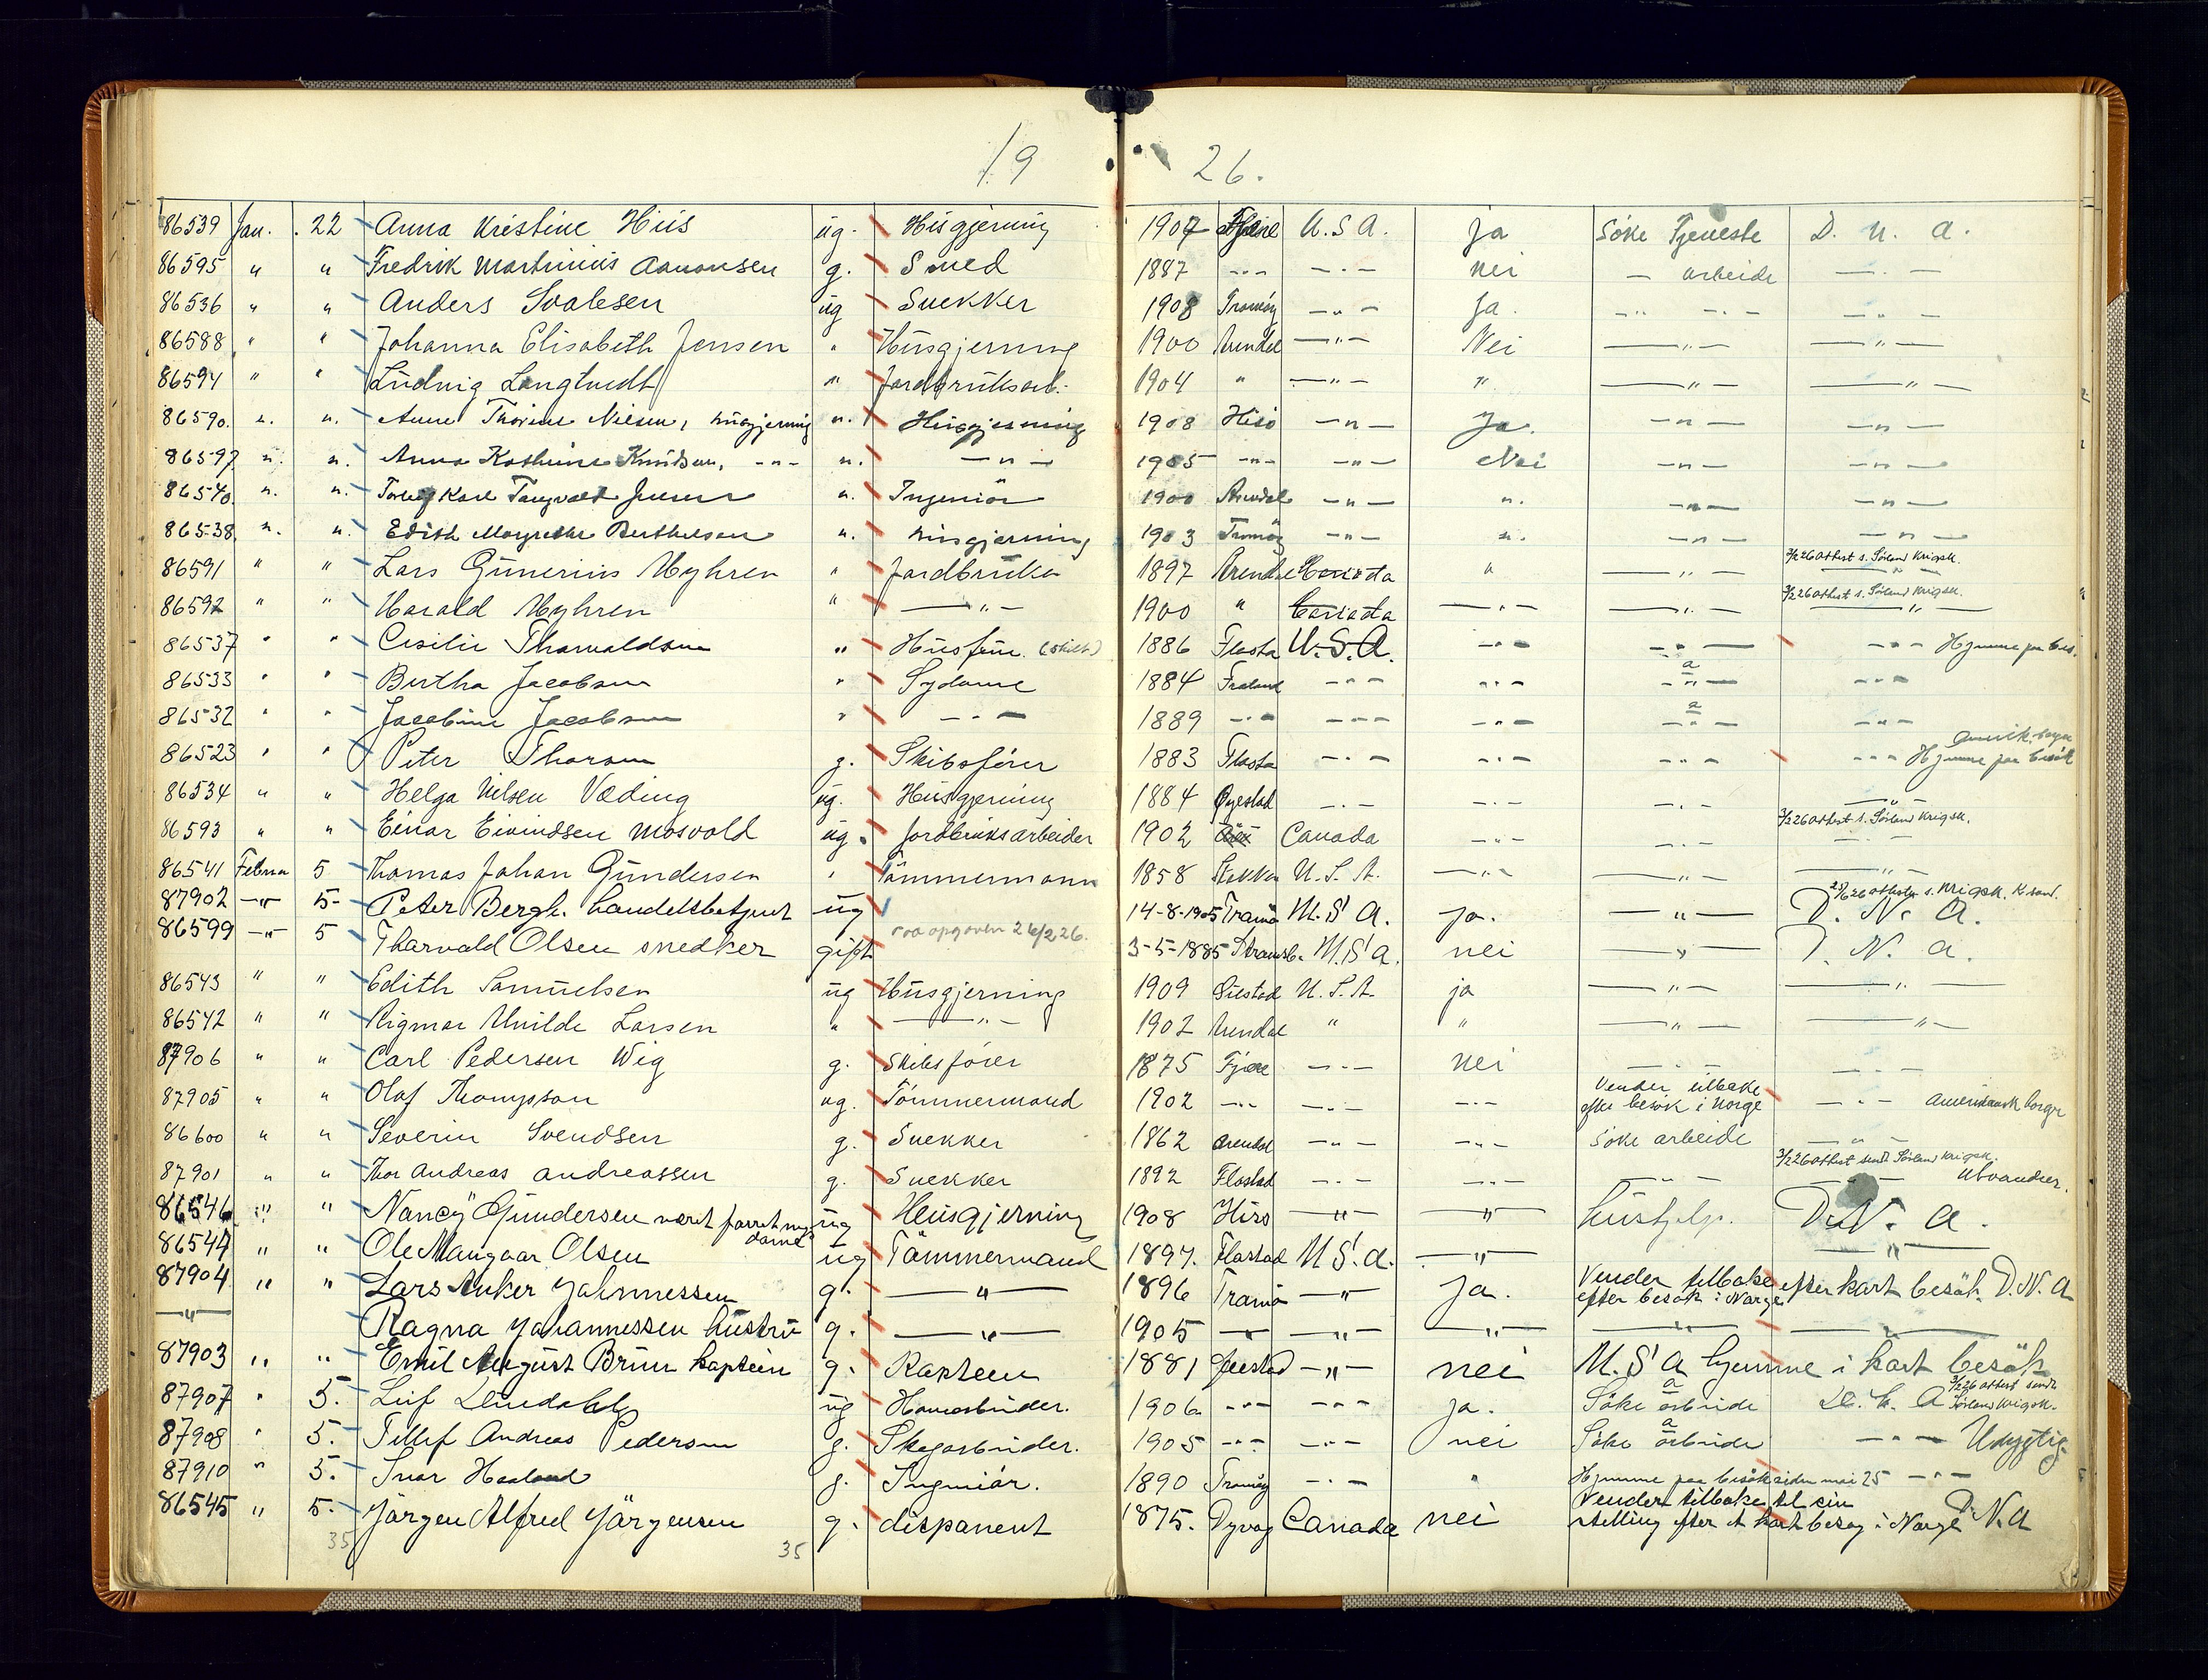 19 26.
86539 Jan. 22 Anna Kristine Hiis ug. Husgjerning 1907 U.S.A. ja Söke Tjeneste D. N. A.
86595 " " Fredrik Martinius Aanonsen g. Smed 1887 -"- -"- nei - arbeide -"-
86536 " " Anders Soalesen ug Snekker 1908 Tromöy -"- Ja. -"- -"- -"-
86588 " " Johanna Elisabeth Jensen " Husgjerning 1900 Arendal -"- Nei -"- -"-
86594 " " Ludvig Langtvedt " Jordbruksarb. 1904 " -"- " -"- -"-
86590. ". ". Anne Thorine Nilsen, husgjerning ". Husgjerning 1908 Hisö -"- Ja. -"- -"-
86597 ". ". Anna Kathrine Knudsen, -"- ". -"- 1905 -"- -"- Nei -"- -"-
86540. ". ". Karl Tangvald Jensen ". Ingeniör 1900 Arendal -"- ". -"- -"-
86538. ". ". Edith Margrethe Berthelsen ". husgjerning 1903 Tromöy -"- ". -"- -"-
3/2 26 Attest s. Sörland Krigsk.
86591 " " Lars Gunerius Myhren " Jordbruker 1897 Arendal Canada " -"- -"-
3/2 26 Attest s. Sörland Krigsk.
86592 " " Harald Myhren " -"- 1900 " Canada -"- -"- -"-
86537 " " Cisilie Thorvaldsen " Husfru (skilt) 1886 Flosta U.S.A. -"- -"- -"- Hjemme paa bes.
86533 " " Bertha Jacobsen " Sydame 1884 Froland -"- -"- -"- -"-
86532 " " Jacobine Jacobsen " -"- 1889 -"- -"- -"- -"- -"-
86523 " " Peter Thorsen g. Skibsförer 1883 Flosta -"- -"- -"- -"- Hjemme paa besök
86534 " " Helga Nilsen Væding ug. Husgjerning 1884 Øyestad -"- -"- -"- -"-
3/2 26 Attest s. Sörland Krigsk.
86593 " " Einar Eivindsen Mosvold ug. Jordbruksarbeider 1902 Canada -"- -"- -"-
86541 Februar 5 Thomas Johan Gundersen " Tömmermann 1858 Stokken U.S.A. -"- -"- -"-
87902 -"- 5- Peter Bergh. handelsbetjent ug 14-8-1905 Tromö U.S.A. ja. -"- D. N. A.
86599 -"- 5 Tharvald Olsen snedker gift opgaven 26/2 26. 3-5-1885 U.S.A. nei -"- D. N. A.
86543 " " Edith Samuelsen ug Husgjerning 1909 U.S.A. ja -"- -"-
86542 " " Rigmor Unilde Larsen " -"- 1902 Arendal " " -"- -"-
87906 " " Carl Pedersen Wig g. Skibsförer 1875 Fjære -"- nei -"- -"-
87905 " " Olaf Thompson ug. Tömmermand 1902 -"- -"- -"- Vender tilbake efter besök i Norge -"- Amerikansk borger
86600 " " Severin Svendsen g. Snekker 1862 Arendal -"- -"- Söke arbeide -"-
3/2 26 Attest sendt Sörland Krigsk.
87901 " " Thor Andreas Andreassen g. Snekker 1892 Flostad -"- -"- -"- Utvandrer.
86546 " " Nancy Gundersen ug Husgjerning 1908 Hisö -"- -"- hushjelp. D. N. A.
86544 " " Ole Mangaar Olsen ug Tömmermand 1897. Flostad U.S.A. -"- -"-
87904 " " Lars Anker Johannessen g. -"- 1896 Tromö -"- ja. Vender tilbake efter kort besök. D.N.A
efter besök i Norge
-"- Ragna Johannessen hustru g. -"- 1905 -"- -"- -"- -"- -"-
87903 " " Emil August Bruun kaptein g. Kaptein 1881 -"- nei U.S.A hjemme i kort besök
87907 " 5. Leif Lindahl ug Havnearbeider. 1906 -"- -"- ja. Söke arbeide D. N. A 3/2 26 attest sendt Sörland Krigsk.
87908 " 5. Tellef Andreas Pedersen g. Skogarbeider. 1905 -"- -"- nei Söke arbeide -"- Udygtig
87910 " 5. Ivar Haaland g. Ingeniör. 1890 Tromöy -"- " Hjemme paa besök siden mai 25 -"-
86545 " 5. Jörgen Alfred Jörgensen g. disponent 1875. Dyvåg Canada nei Vender tilbake til sin
stelling efter et kort besøg i Norge D. N. A
35 35